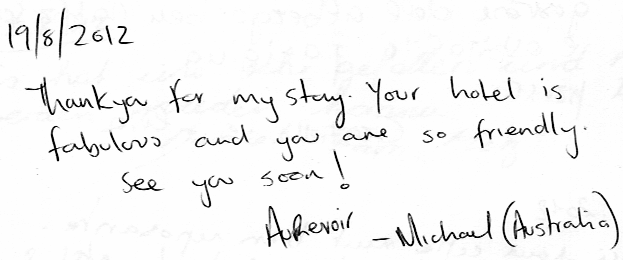 19/8/2012
Thankyou for my stay. Your hotel is
fabulous and you are so friendly.
See you soon!
Au Revoir - Michael (Australia)